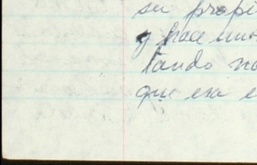 su propi
y hace un
tando no
que esa e